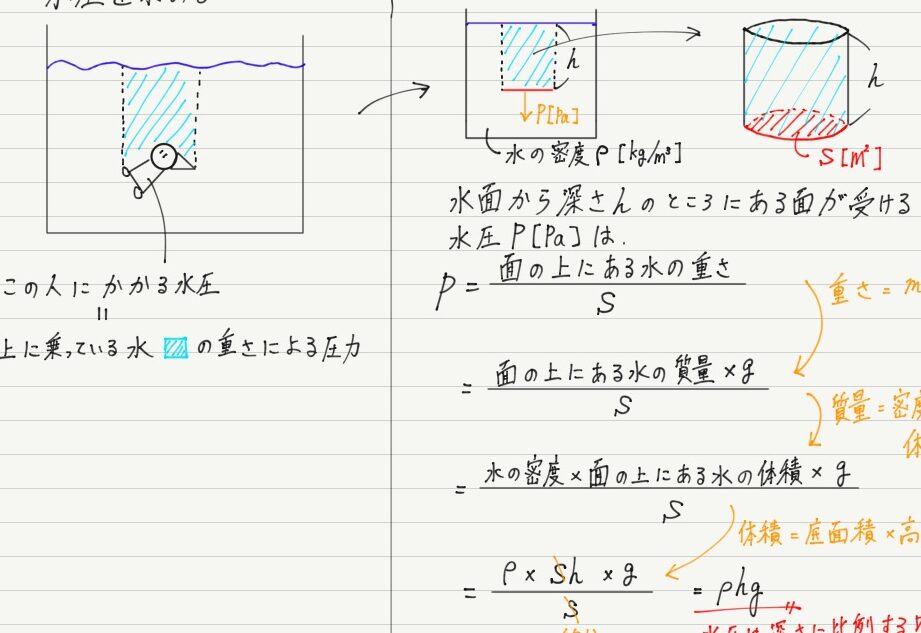 この人にかかる水圧
=
上に乗っている水 の重さによる圧力
h
P[Pa]
水の密度ρ[kg/m³]
h
S[m²]
水面から深さhのところにある面が受ける
水圧P[Pa]は.
P = 面の上にある水の重さ / S
重さ = m
= 面の上にある水の質量×g / S
質量 = 密度
体
= 水の密度×面の上にある水の体積×g / S
体積 = 底面積×高
= ρ × Sh × g / S = ρhg
水圧は深さに比例する